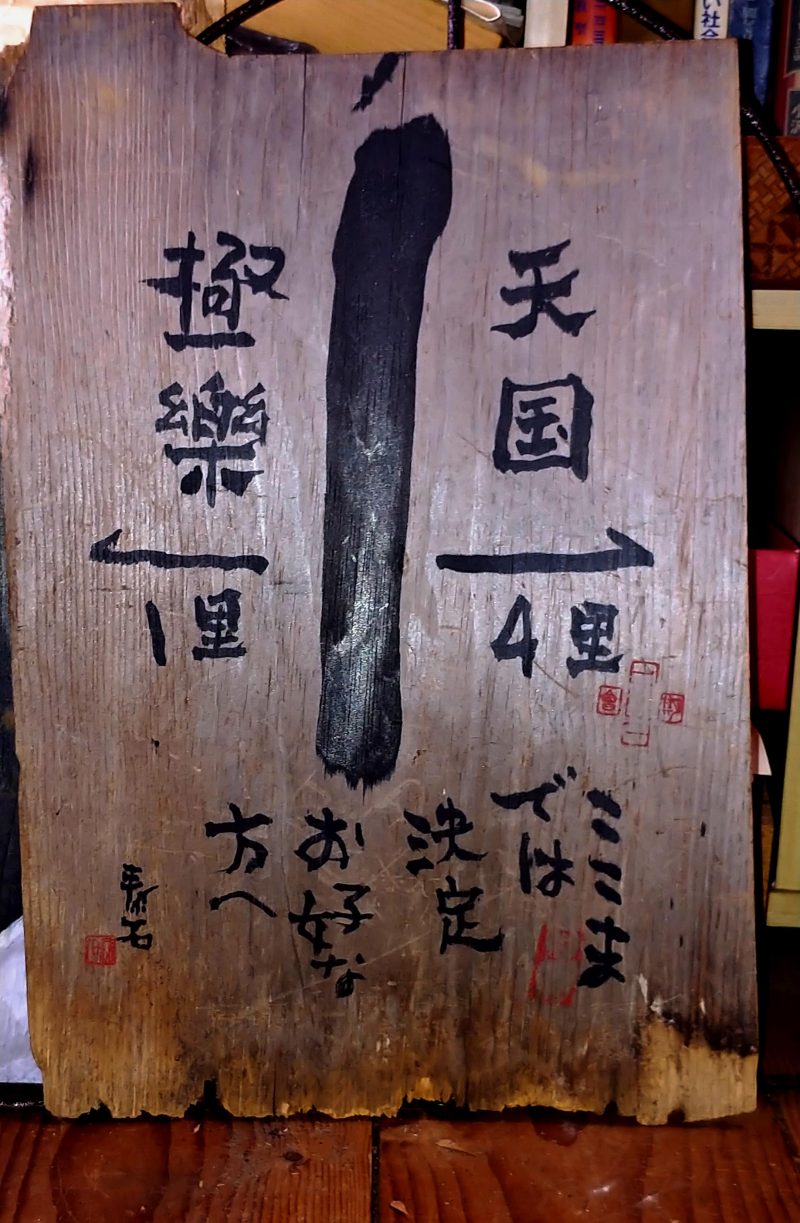 天国
4里
極樂
1里
ここま
では
決定
お好な
方へ
い社会
會